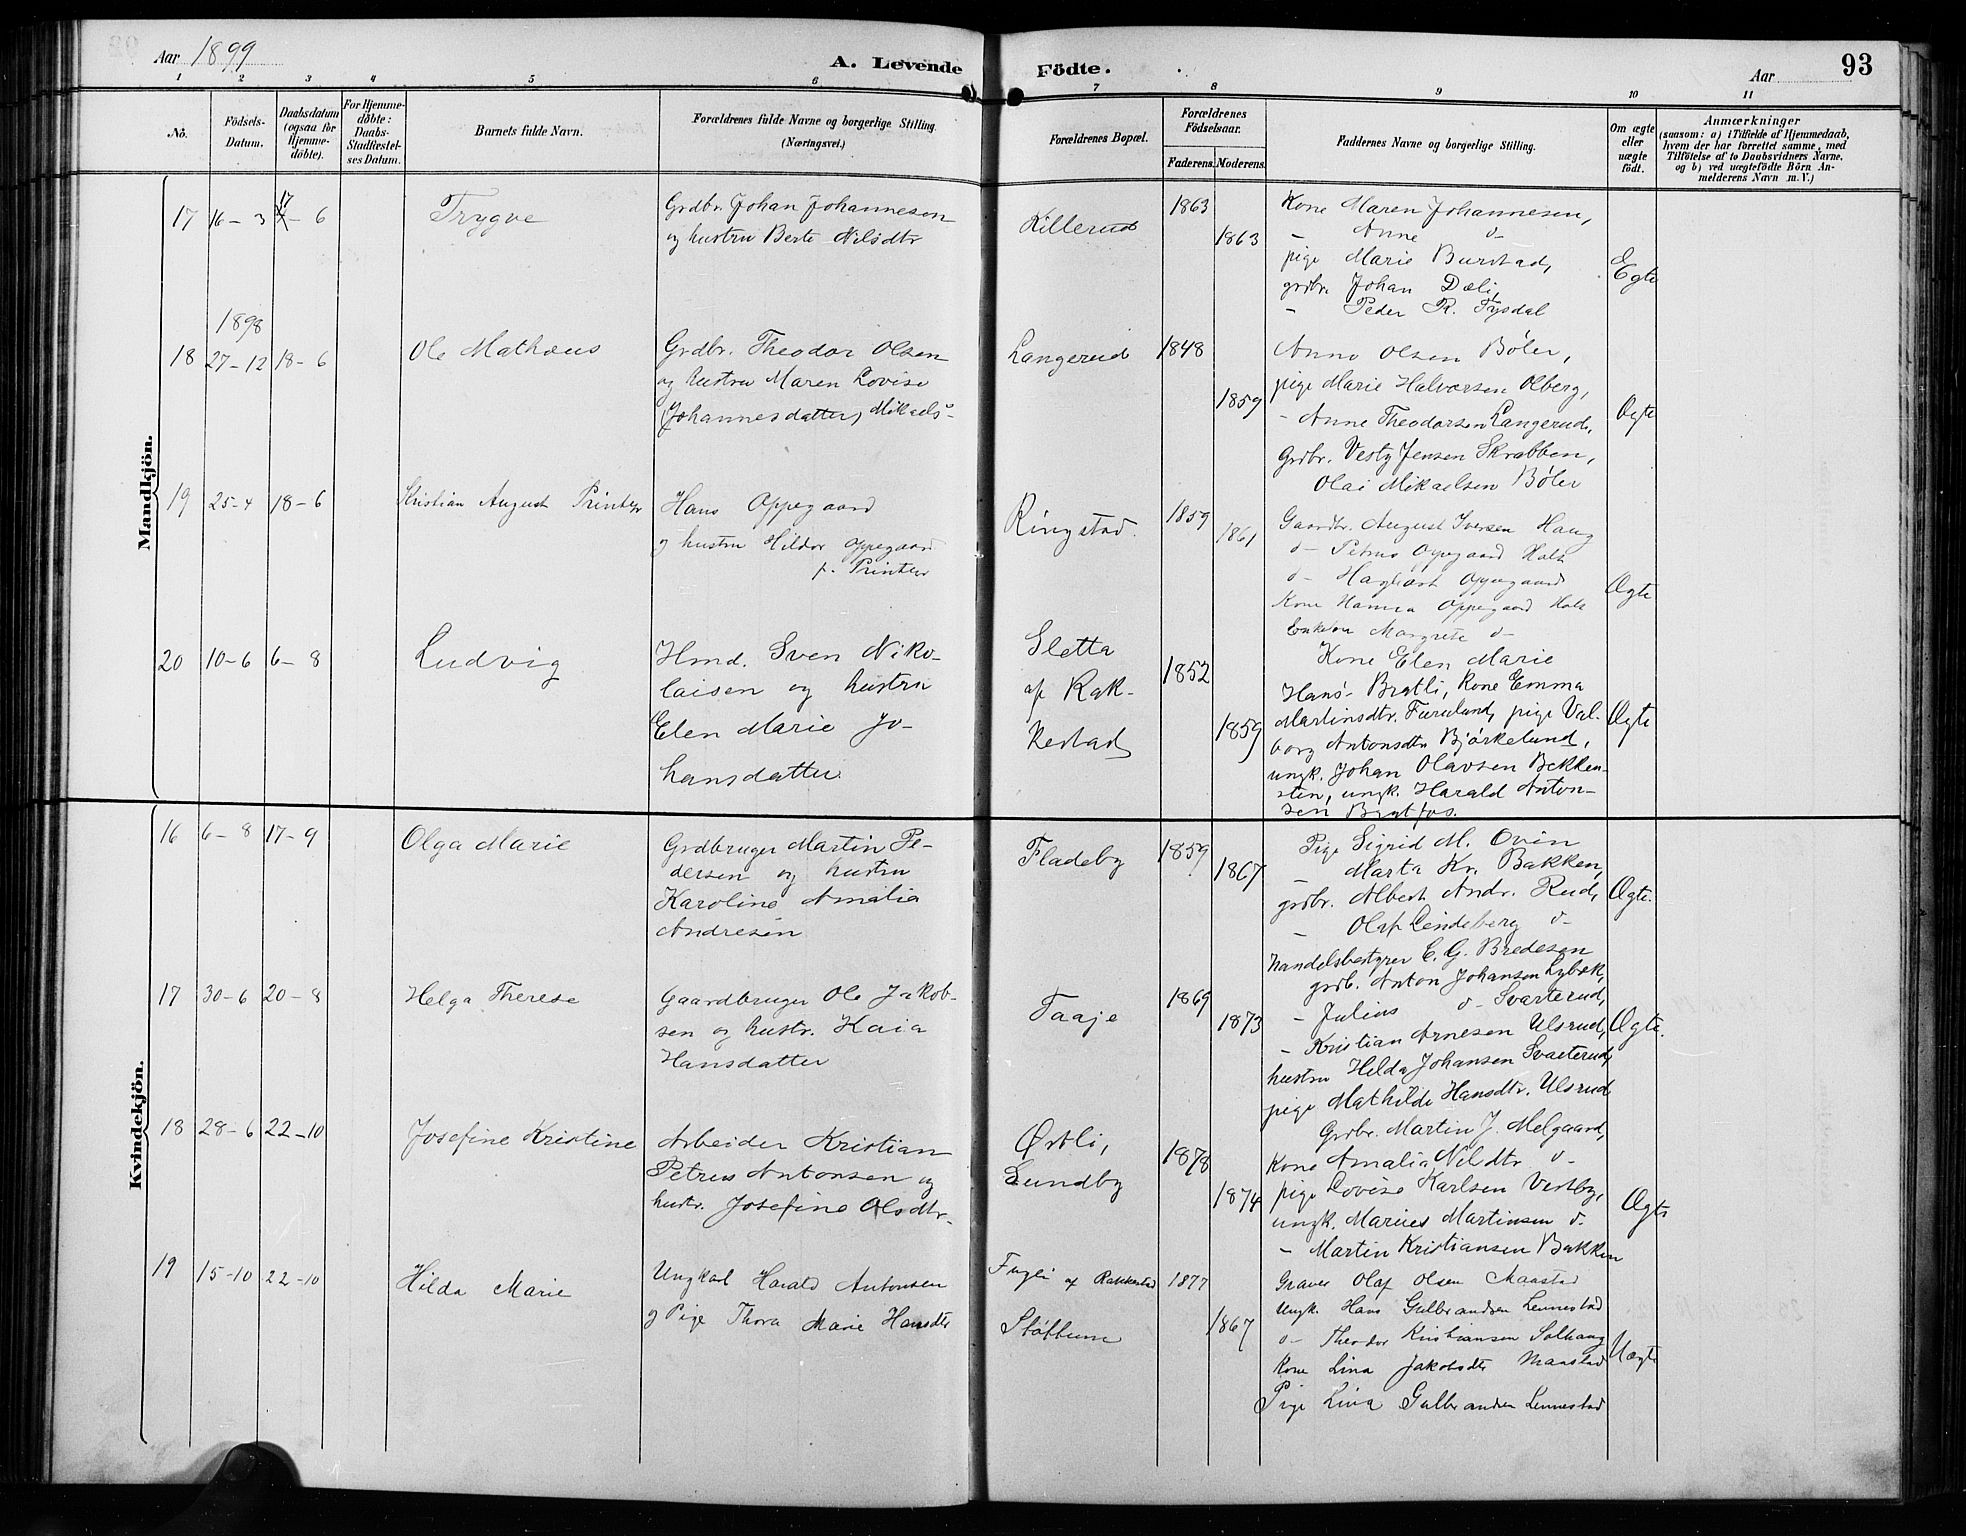 Aar 1899
A. Levende Födte.
Aar
93
1 2 3 4 5 6 7 8 9 10 11
No.
Födsels-Datum.
Daabsdatum (ogsaa for Hjemmedöbte).
For Hjemmedöbte: Daabs-Stadfæstelses Datum.
Barnets fulde Navn.
Forældrenes fulde Navne og borgerlige Stilling. (Næringsvei.)
Forældrenes Bopæl.
Forældrenes Födselsaar.
Faderens. Moderens.
Faddernes Navne og borgerlige Stilling.
Om ægte eller uægte födt.
Anmærkninger
(saasom: a) i Tilfælde af Hjemmedaab,
hvem der har forrettet samme, med
Tilföielse af to Daabsvidners Navne,
og b) ved uægtefödte Börn An-
melderens Navn m. V.)
Mandkjön.
17 16-3 17-6 Trygve
Grdbr. Johan Johannesen
og hustru Berte Nilsdtr
Killerud
1863
1863
Kone Maren Johannesen,
- Anne d-
pige Marie Burstad,
grdbr. Johan Dæli,
- Peder R. Tysdal
Egte
1898
18 27-12 18-6 Ole Mathæus
Grdbr. Theodor Olsen
og hustru Maren Lovise
(Johannesdatter) Mikaels-
Langerud
1848
1859
Anne Olsen Bøler,
pige Marie Halvorsen Olberg,
- Anne Theodorsen Langerud,
Grdbr. Vestly Jensen Skrabben,
Olai Mikaelsen Bøler
Ægte
19 25-4 18-6 Kristian August Printzer
Hans Oppegaard
og hustru Hildor Oppegaard
f. Printzer
Ringstad.
1859
1861
Gaardbr. August Iversen Haug
d- Petrus Oppegaard Holt
d- Oppegaard
Kone Hanna Oppegaard Holt
Margrete d-
Ægte
20 10-6 6-8 Ludvig
Hmd. Sven Niko-
laisen og hustru
Elen Marie Jo-
hansdatter
Sletta
af Rak-
kestad
1852
1859
Kone Elen Marie
Hans- Bratli, Kone Emma
Martinsdtr. Furulund, pige Val-
borg Antonsdtr Bjørkelund,
ungk. Johan Olavsen Bekken-
sten, ungk. Harald Anton-
sen Bratfos.
Ægte
Kvindekjön.
16 6-8 17-9 Olga Marie
Grdbruger Martin Pe-
dersen og hustru
Karoline Amalia
Andresen
Fladeby
1859
1867
Pige Sigrid M. Ovin
- Marta Kr. Bakken,
grdbr. Albert Andr. Rud,
- Olaf Lindeberg d-
Handelsbestyrer C. G. Bredesen
Ægte.
17 30-6 20-8 Helga Therese
Gaardbruger Ole Jakob-
sen og hustr. Kaia
Hansdatter
Taaje
1869
1873
grdb. Anton Johansen Lybæk,
- Julius d- Svarterud,
- Kristian Arnesen Ulsrud,
hustru Hilda Johansen Svarterud,
pige Mathilde Hansdtr. Ulsrud
Ægte.
18 28-6 22-10 Josefine Kristine
Arbeider Kristian
Petrus Antonsen og
hustr. Josefine Olsdtr.
Østli,
Sundby
1878
1874
Grdbr. Martin J. Melgaard,
Kone Amalia Nilsdtr d-
pige Lovise Karlsen Vestby,
ungk. Marius Martinsen d-
- Martin Kristiansen Bakken
Ægte
19 15-10 22-10 Hilda Marie
Ungkarl Harald Antonsen
og Pige Thora Marie Hansdtr
Fugli af Rakkestad
Støttum
1877
1867
Graver Olaf Olsen Maastad
Ungk. Hans Gulbrandsen Lennestad
d- Theodor Kristiansen Solhaug
Kone Lina Jakobsdtr Maastad
Pige Lina Gulbrandsen Lennestad
Uægte